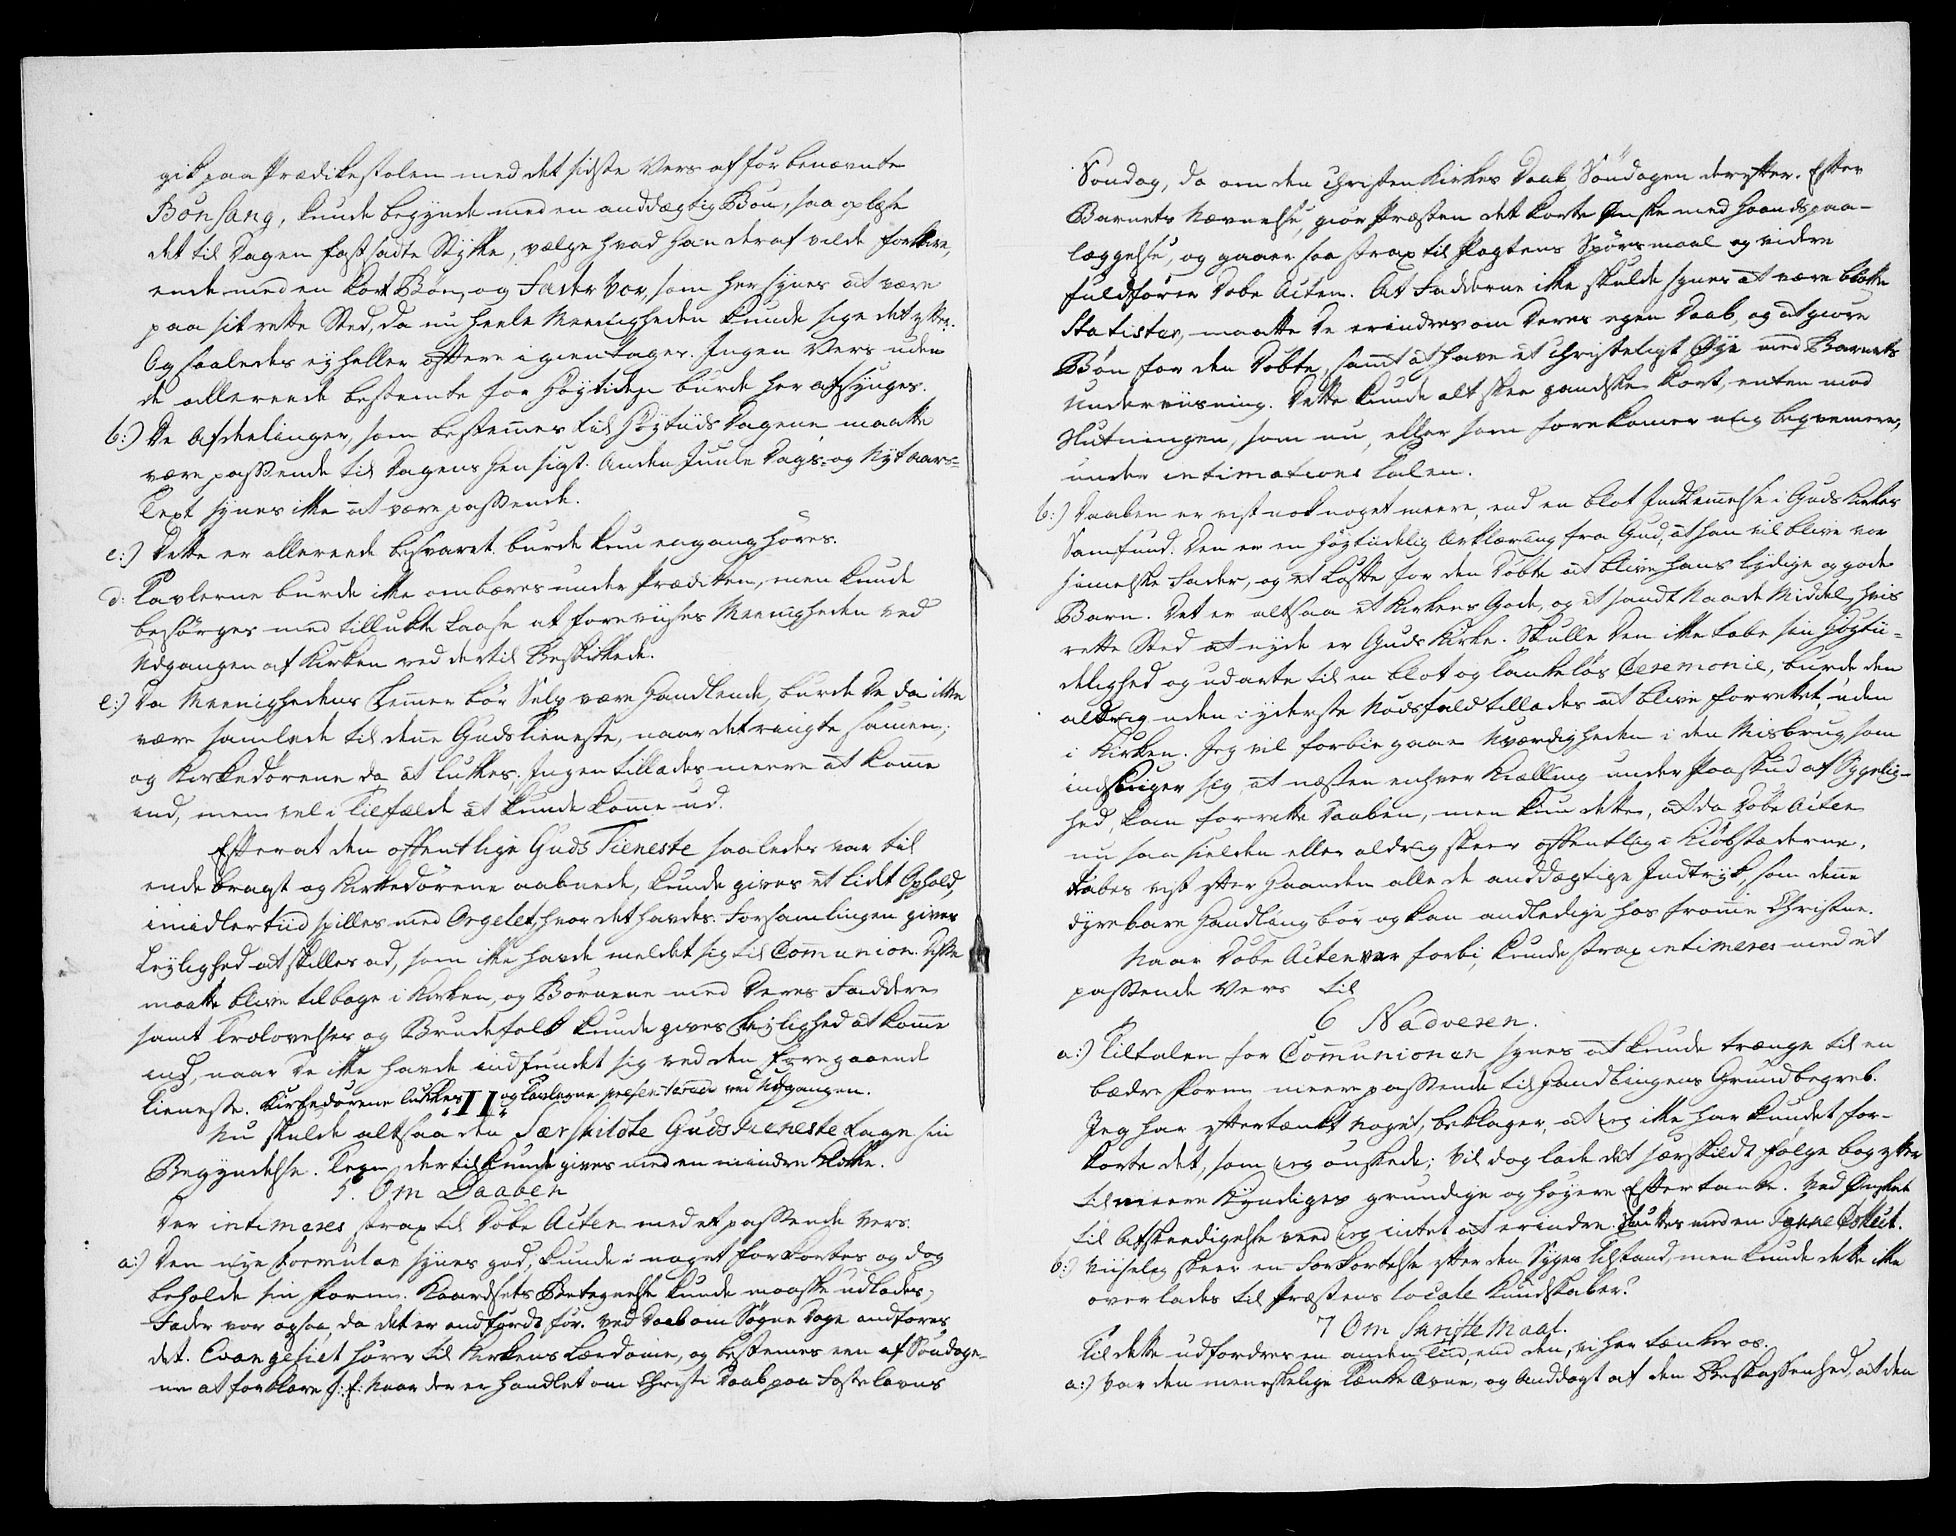 gik paa Prædikestolen med det sidste Vers af forbenævnte
Bönsang, kunde begynde med en anddægtig Bön, saa oplæse
det til Dagen fastsadte Stykke, vælge hvad han deraf vilde forklare,
ende med en kort Bön, og Fader Vor, som her synes at være
paa sit rette Sted, da nu heele Meenigheden kunde sige det efter.
Og saaledes ey heller oftere igientages. Ingen Vers uden
de allereede bestemte for Höytiden burde her afsynges.
b:) De Afdeelinger, som bestemmes til Höytiids Dagene, maatte
være passende til Dagens Hensigt. Anden Juule Dags- og Nytaars-
Text synes ikke at være passende.
c:) Dette er allereede besvaret. burde kun engang höres.
d: Tavlerne burde ikke ombæres under Prædiken, men kunde
besörges med tillukte Laase at foreviises Meenigheden ved
Udgangen af Kirken ved dertil Beskikkede.
e:) Da Meenighedens Lemmer bör Selv være Handlende, burde De da ikke
være samlede til denne Gudstieneste, naar det ringte samen;
og Kirkedörene da at lukkes. Ingen tillades meere at komme
ind, men vel i Tilfælde at kunde komme ud.
Efter at den offentlige Guds Tieneste saaledes var til
ende bragt og Kirkedörene aabnede, kunde gives et lidet Ophold,
imidlertiid spilles med Orgelet, hvor det havdes. Forsamlingen gives
Leylighed at skilles ad, som ikke havde meldet sig til Communion. Disse
maatte blive tilbage i Kirken, og Börnene med Deres Faddere
samt Trolovelses og Brudefolk kunde gives Leylighed at komme
ind, naar De ikke havde indfundet sig ved den foregaaende
Tieneste. Kirkedörene lukkes II og Tavlerne præsenteres ved Udgangen.
Nu skulde altsaa den Særskildte Guds tieneste tage sin
Begyndelse. Tegn dertil kunde gives med en mindre Klokke.
5. Om Daaben
Der intimeres strax til Döbe Acten med et passende Vers.
a:) Den nye Formular synes god, kunde i noget forkortes og dog
beholde sin Form. Kaardsets Betegnelse kunde maaske udlades,
Fader vor ogsaa, da det er andfördt för. Ved Daab om Sögne Dage andföres
det. Evangeliet hörer til Kirkens Lærdomme, og bestemmes een af Söndage-
ne at forklare f: E: Naar der er handlet om Christi Daab paa Fastelavns
Söndag, da om den christen Kirkes Daab Söndagen derefter. Efter
Barnets Nævnelse, giör Præsten det korte Ønske med Haandspaa-
læggelse, og gaaer saa strax til Pagtens Spörsmaal og videre
fuldförer Döbe Acten. At Fadderne ikke skulde synes at være blotte
Statister, maatte De erindres om Deres egen Daab, og at giøre
Bön for den Döbte, samt at have et christeligt Øye med Barnets
Underviisning. Dette kunde alt skee gandske kort, enten mod
Slutningen, som nu, eller som forekommer mig beqvemmere,
under intimations Talen.
b:) Daaben er vist nok noget meere, end en blot Indlemmelse i Guds Kirkes
Samfund. Den er en höytiidelig Erklæring fra Gud, at han vil blive vor
himmelske Fader, og et Löfte for den Döbte at blive hans lydige og gode
Barn. Det er altsaa et Kirkens Gode, og et sandt Naade Middel, hvis
rette Sted at nyde er Guds Kirke. Skulle Den ikke tabe sin Höytii-
delighed og udarte til en blot og tankelös Ceremonie, burde den
aldrig uden i yderste Nödsfald tillades at blive forrettet uden
i Kirken. Jeg vil forbiegaae Uværdigheden i den Misbrug, som
indsniger sig, at næsten enhver Kiælling under Paaskud af Sygelig-
hed, kan forrette Daaben, men kun dette, at da Döbe Acten
nu saa sielden eller aldrig skeer offentlig i Kiöbstæderne,
tabes vist efter Haanden alle de anddægtige Indtryk, som denne
dyrebare Handling bör og kan andledige hos fromme Christne.
Naar Döbe Acten var forbi, kunde strax intimeres med et
passende Vers til
6 Nadveren.
a:) Tiltalen for Communionen synes at kunde trænge til en
bædre Form meere passende til Handlingens Grundbegreb.
Jeg har eftertænkt noget, beklager, at jeg ikke har kundet for-
korte det, som jeg önskede; vil dog lade det særskildt fölge bag efter
til meere Kyndiges grundige og höyere Eftertanke. Ved Ønsket
til Afskeedigelse veed jeg intet at erindre. Sluttes med en
b:) Viiselig skeer en Forkortelse efter den Syges Tilstand, men kunde dette ikke
overlades til Præstens locale Kundskaber?
7 Om Skrifte Maal.
Til dette udfordres en anden Tiid, end den, vi her tænker os.
a:) Var den menneskelige Tænke Evne, og Anddagt af den Beskaffenhed, at den